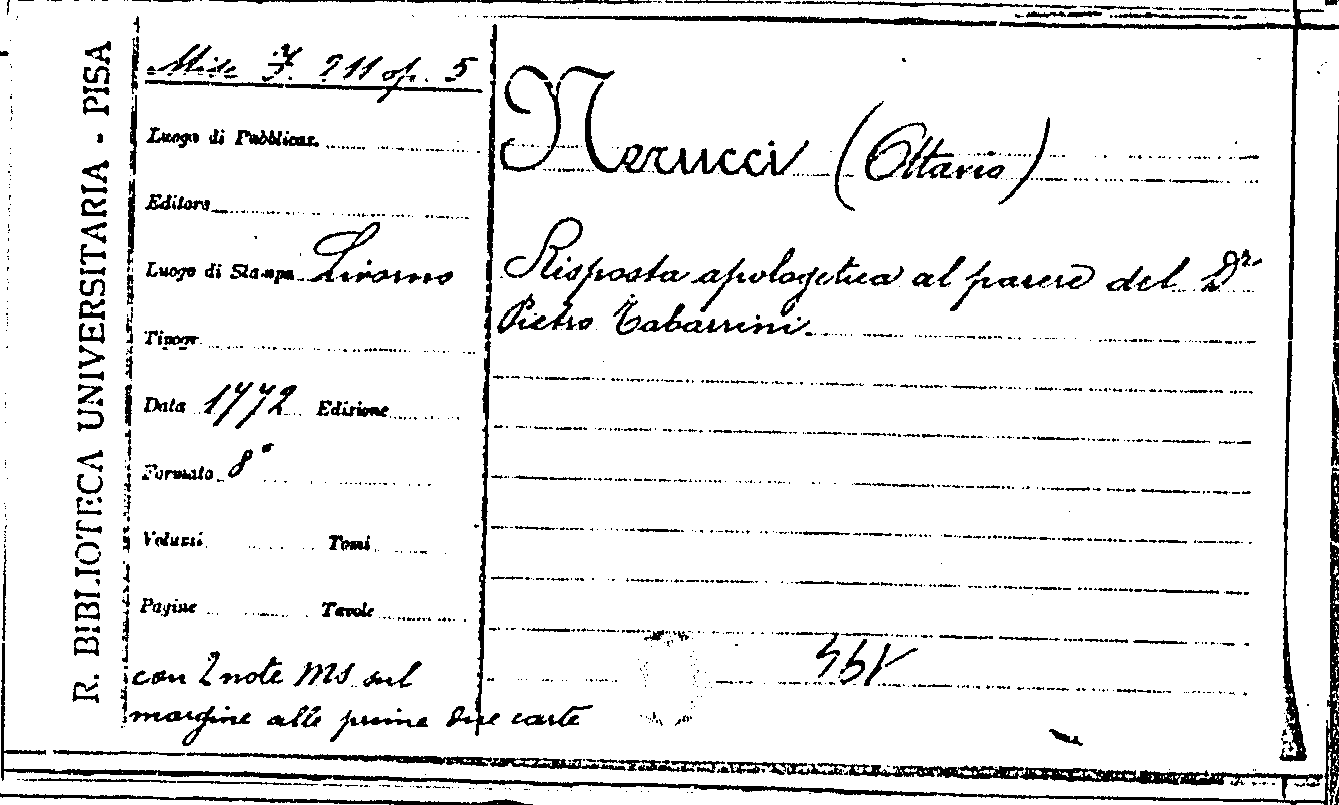 R. BIBLIOTECA UNIVERSITARIA - PISA
Misc 211 op. 5
Luogo di Pubblicaz.
Editore
Luogo di Stampa Livorno
Tipogr.
Data 1772 Edizione
Formato 8°
Volumi Tomi
Pagine Tavole
con 2 note MS sul
margine alle prime due carte
Nerucci (Ottavio)
Risposta apologetica al parere del Dr
Pietro Tabarrini.